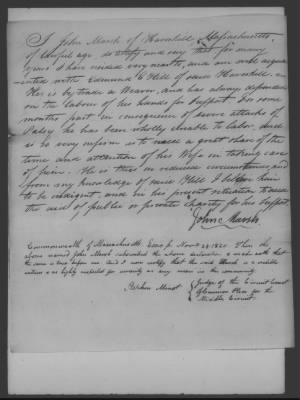 I John March of Haverhill, Massachusetts,
of lawful age do testify and say that for many
years I have resided very near to, and am well acquai
nted with Edmund Hill of said Haverhill.
He is by trade a Weaver, and has always depended
on the labour of his hands for support. For some
months past in consequence of severe attacks of
Palsy he has been wholly unable to labor, and
is so very infirm as to need a great share of the
time and attention of his Wife in taking care
of him. He is thus in reduced circumstances and
from my knowledge of said Hill I believe him
to be indigent and in his present situation to need
the aid of public or private charity for his support.
John March
Commonwealth of Massachusetts Essex ss. Novr 28 1820 Then the
above named John March subscribed the above declaration & made oath that
the same is true before me. And I now certify that the said March is a credible
witness & as highly respected for veracity as any man in the community.
Stephen Minot
Judge of the Circuit Court
of Common Pleas for the
Middle Circuit.